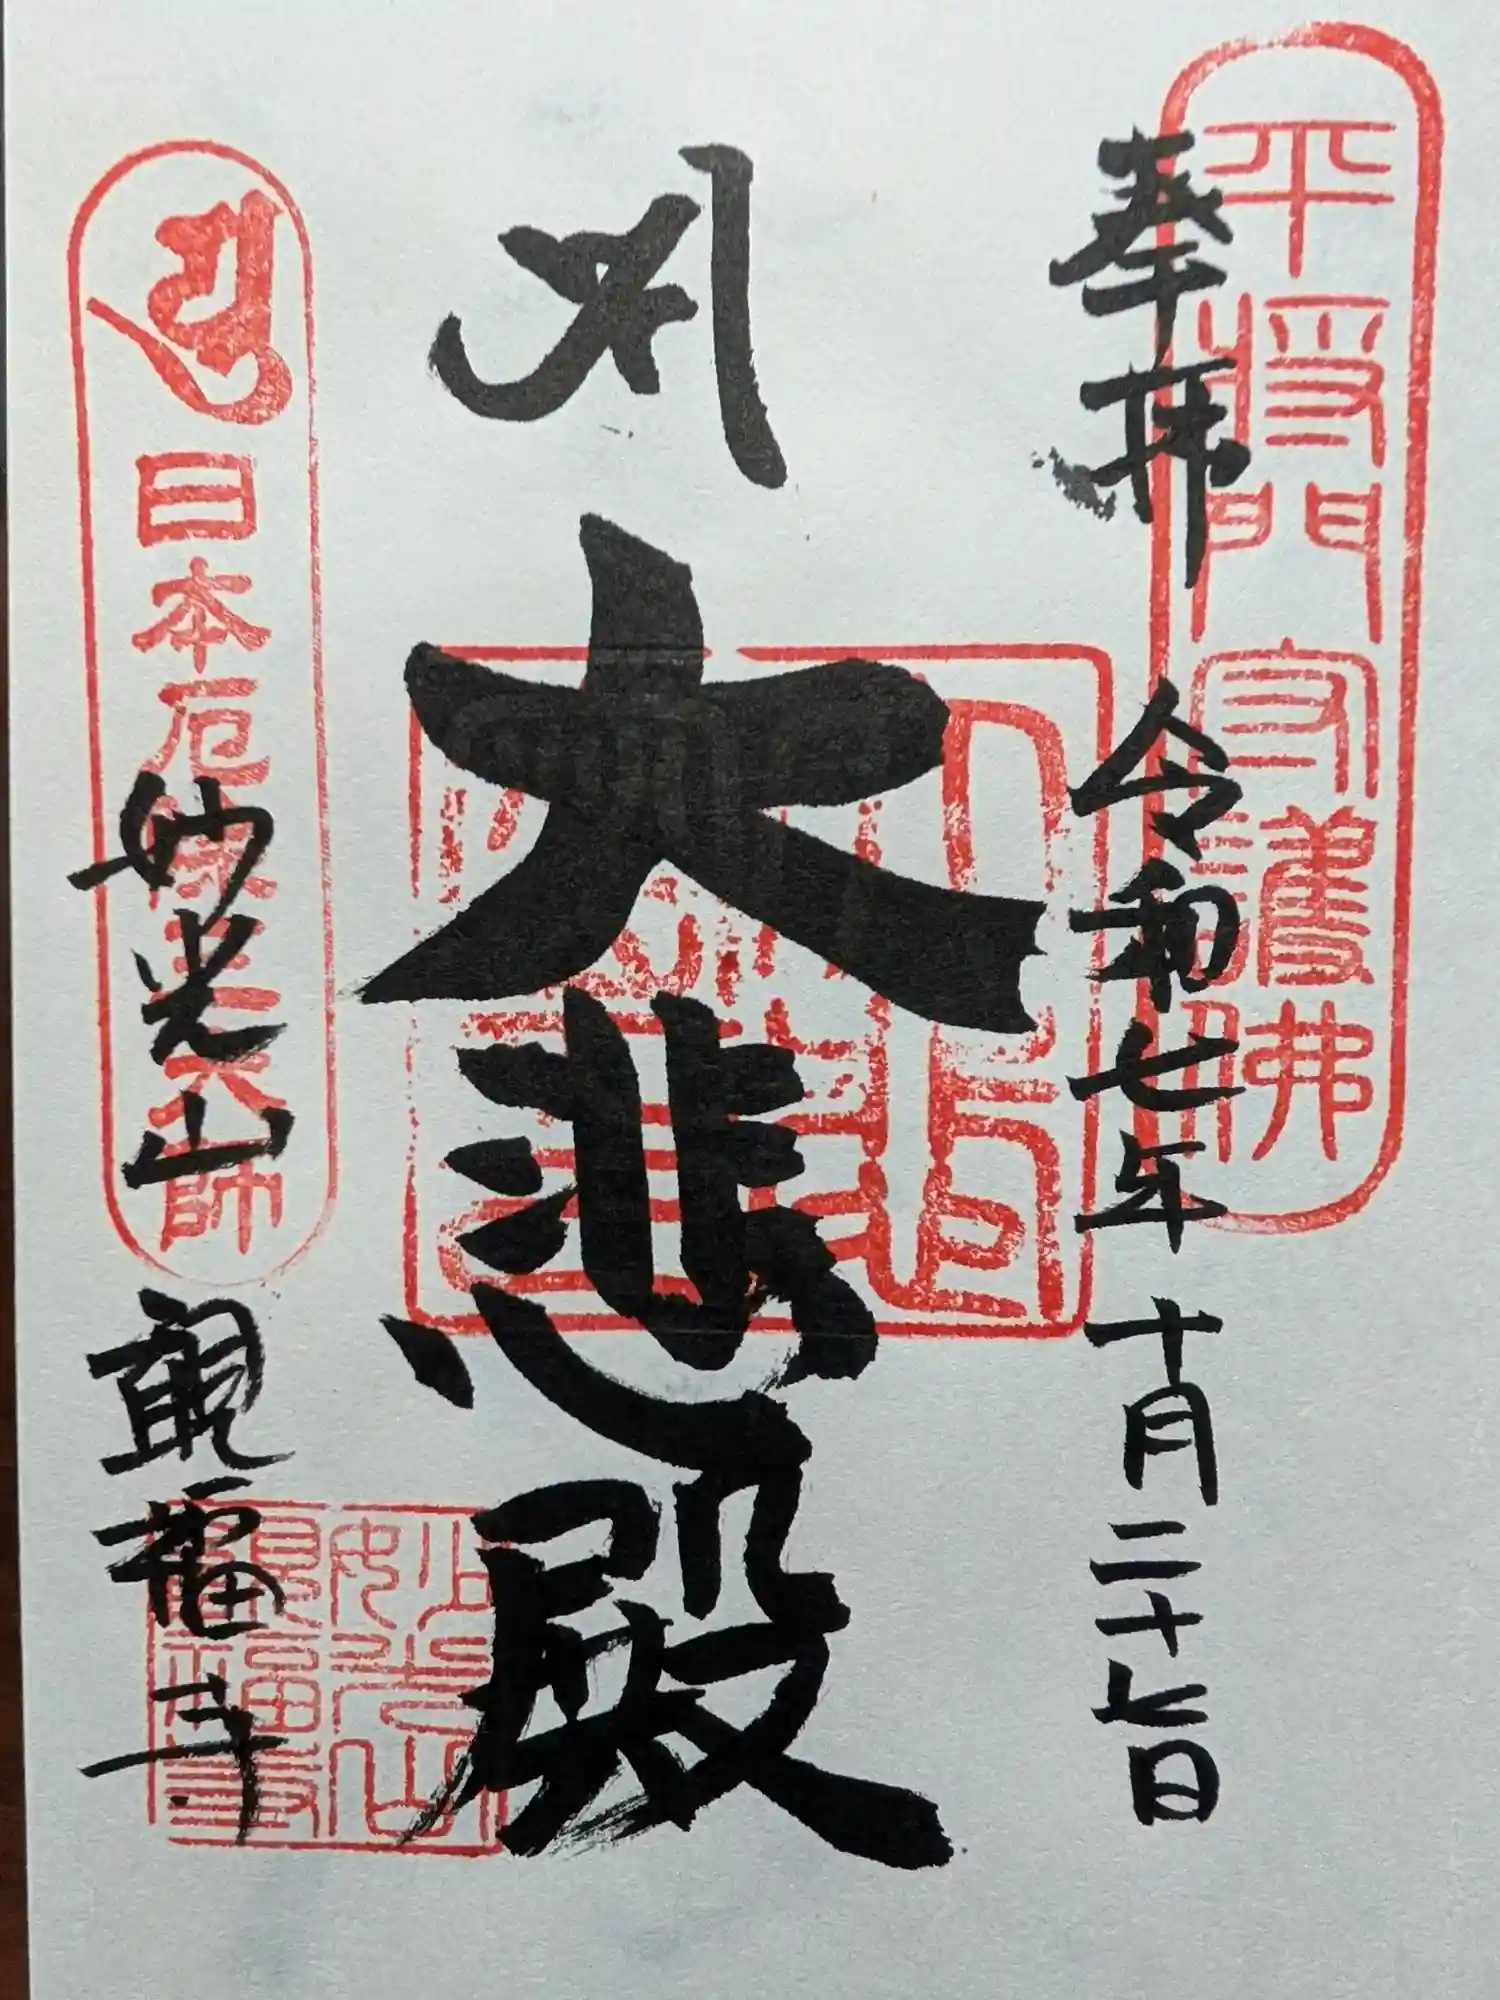 奉拝
令和七年十月二十七日
平将門守護佛
大悲殿
日本厄除三大師
妙光山
観福寺
妙光山
観福寺